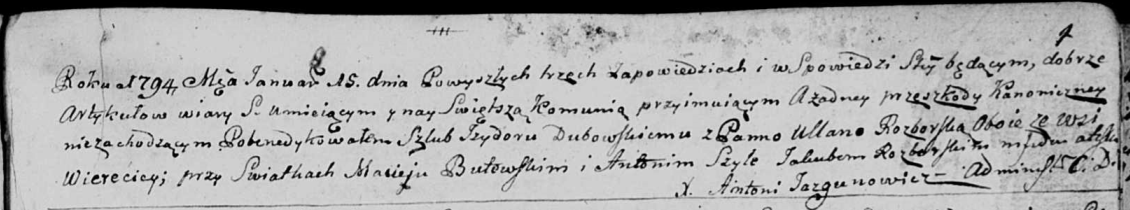 4
Roku 1794 Mca Januar 15. dnia Powyszłych trzech Zapowiedziach i w Spowiedzi Stey będącym, dobrze
Artykułow wiary S. umieiącym y nay Swiętszą Komunią przyimuiącym A żadney przeszkody Kanoniczney
niezachodzącym Pobenedykowałem Szlub Izydoru Dubowskiemu z Panno Ullano Rozborską Oboie ze Wsi
Wierecicy; przy Swiatkach Macieju Butowskim i Antonim Szyle Jakubem Rozborskim
X. Antoni Jazgunowicz – Adminst. C. D.